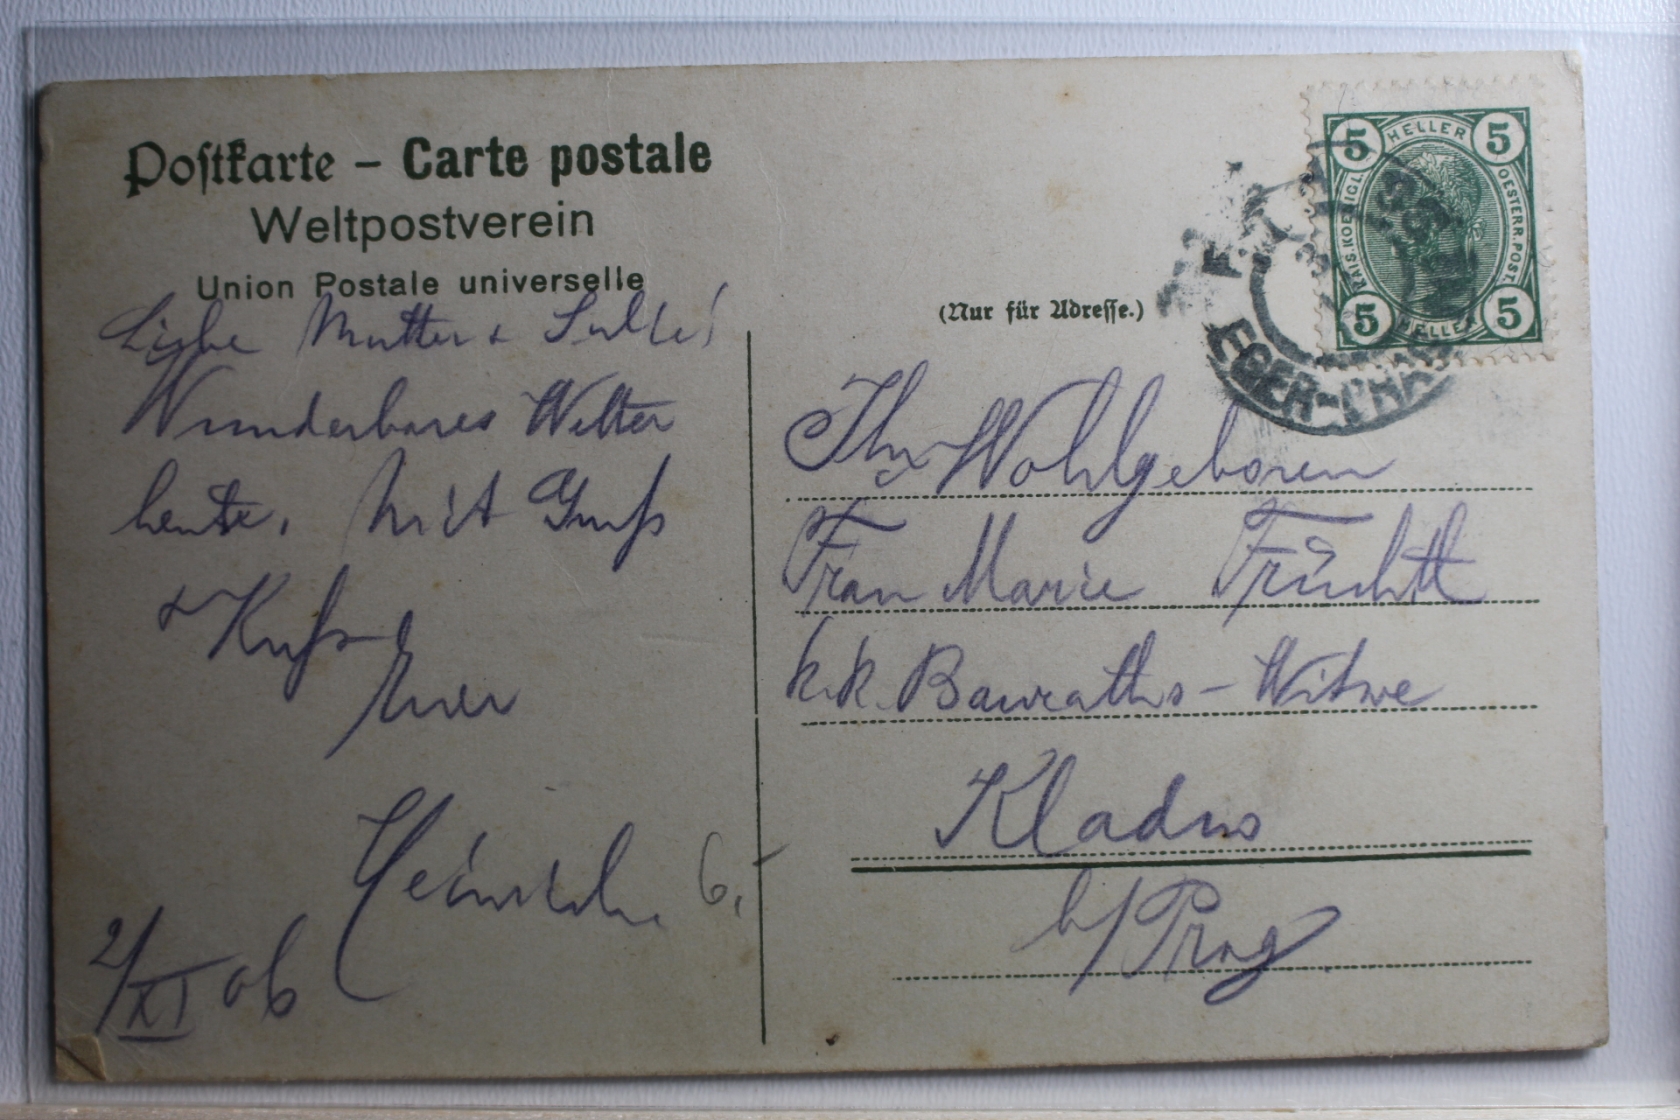 Postkarte – Carte postale
Weltpostverein
Union Postale universelle
(Nur für Adresse.)
5 HELLER 5
KAIS. KOENIGL. OESTERR. POST.
5 HELLER 5
EGER-PRAG
Liebe Mutter &
Wunderbares Wetter
heute. Mit Gruß
& Kuß
Euer
Heinrich.
2/XI 06
6,-
Ihr Wohlgeboren
Frau Marie Früchtl
k.k. Bauraths-Witwe
Kladno
b/Prag.